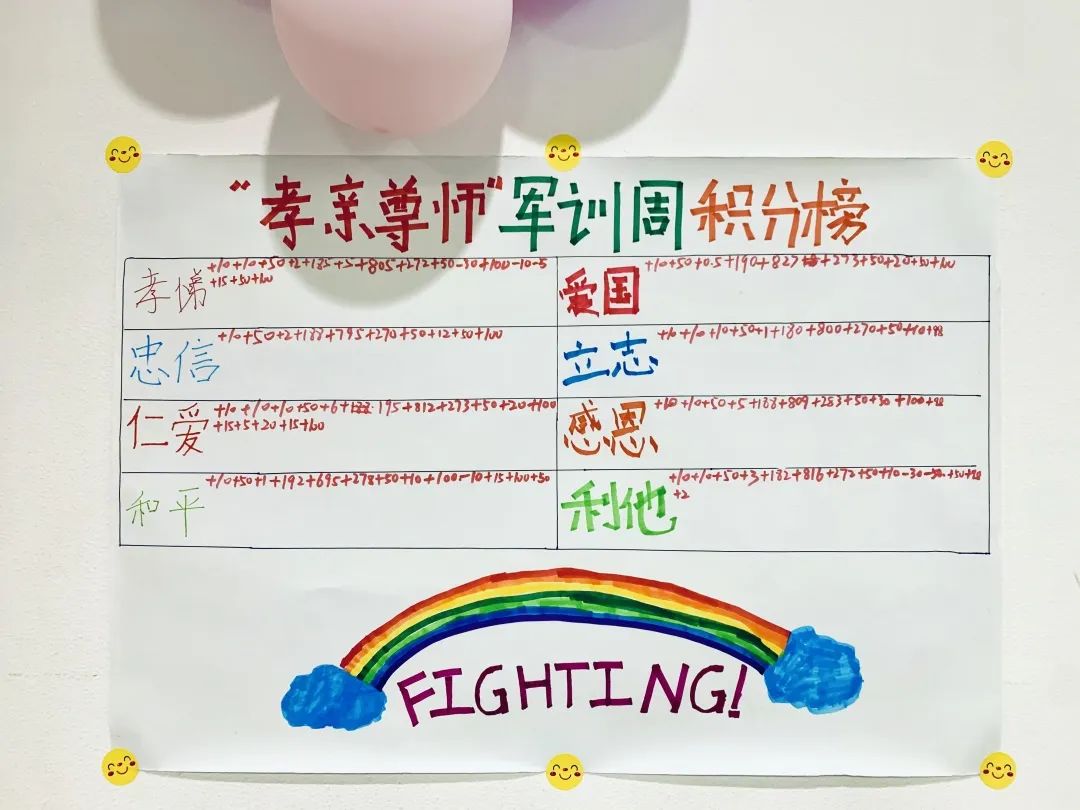 “孝亲尊师”军训周积分榜
孝悌 +10+10+50+2+185+5+805+272+50-30+100-10-5
+15+50+100
爱国 +10+50+0.5+190+827+273+50+20+50+100
忠信 +10+50+2+188+795+270+50+12+50+100
立志 +10+10+10+50+1+180+800+270+50+10+98
仁爱 +10+10+10+50+6+195+812+273+50+20+100
+15+5+20+15+100
感恩 +10+10+50+5+188+809+283+50+30+100+98
和平 +10+50+1+192+695+278+50+10+100-10+15+100+50
利他 +10+10+50+3+182+816+272+50+10-30-50+50+98
+2
FIGHTING!